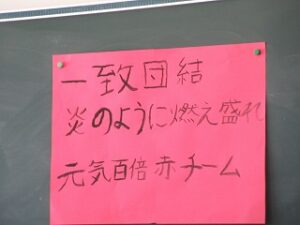 一致団結
炎のように燃え盛れ
元気百倍赤チーム